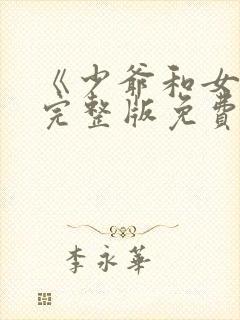 《少爷和女
完整版免费
李永华